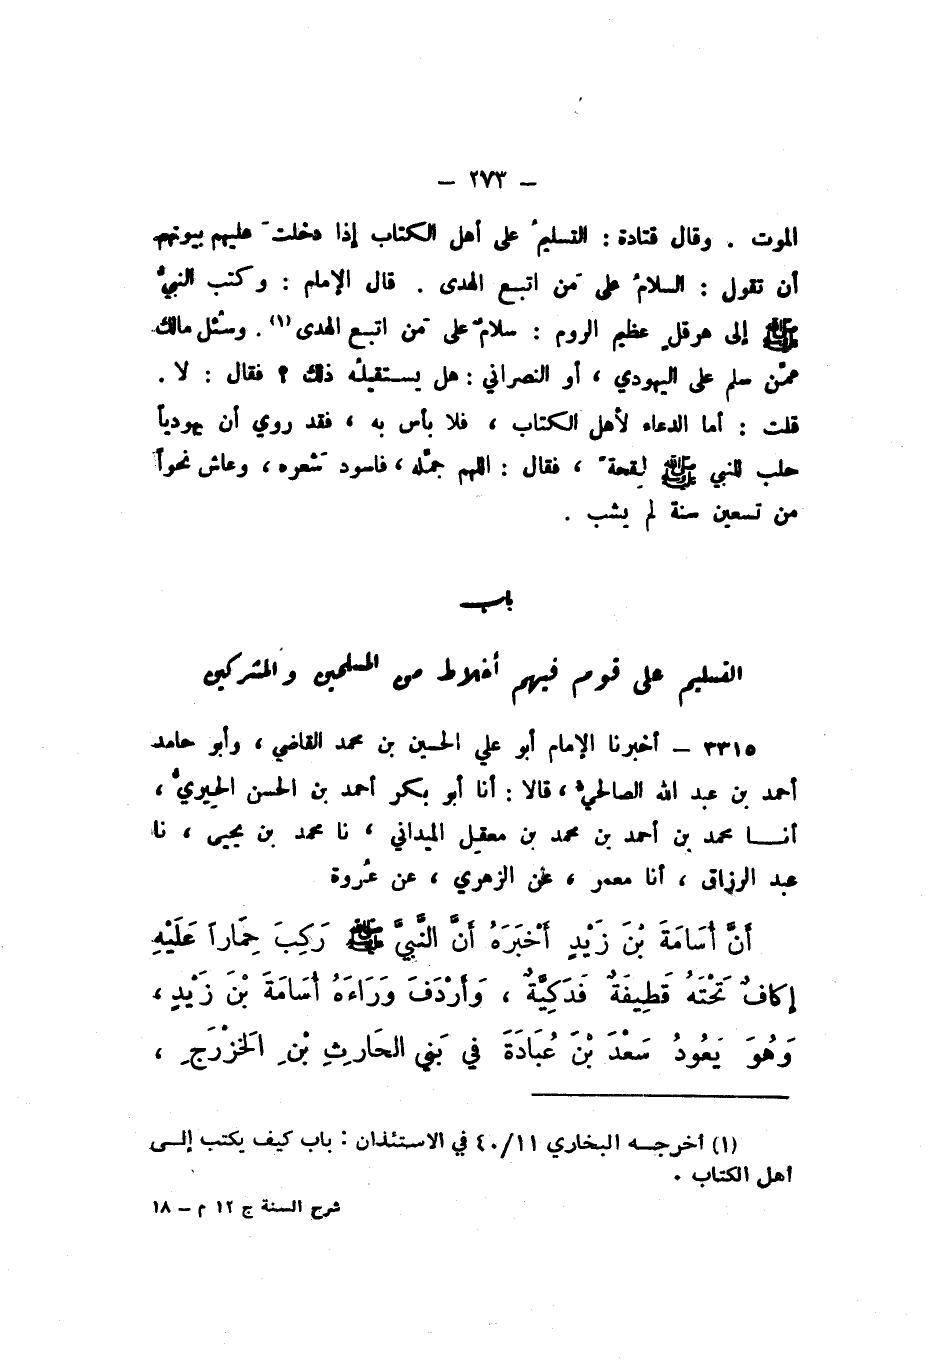 – ٢٧٣ –
الموت . وقال قتادة : التسليمُ على أهل الكتاب إذا دخلتَ عليهم بيوتهم
أن تقول : السلامُ على مَن اتبع الهدى . قال الإمام : وكتب النبيُّ
ﷺ إلى هرقلِ عظيم الروم : سلامٌ على مَن اتبع الهدى (١) . وسُئل مالك
عمَّن سلم على اليهودي ، أو النصراني : هل يستقيلُه ذلك ؟ فقال : لا .
قلت : أما الدعاء لأهل الكتاب ، فلا بأس به ، فقد روي أن يهودياً
حلب للنبي ﷺ لِقحةً ، فقال : اللهم جمّله ، فاسود شَعوه ، وعاش نحواً
من تسعين سنة لم يشب .
باب
التسليم على قوم فيهم أخلاط من المسلمين والمشركين
٣٣١٥ – أخبرنا الإمام أبو علي الحسين بن محمد القاضي ، وأبو حامد
أحمد بن عبد الله الصالحيُّ ، قالا : أنا أبو بكر أحمد بن الحسن الحيريُّ ،
أنــا محمد بن أحمد بن محمد بن معقل الميداني ، نا محمد بن يحيى ، نا
عبد الرزاق ، أنا معمر ، عن الزهري ، عن عُروة
أَنَّ أُسَامَةَ بْنَ زَيْدٍ أَخْبَرَهُ أَنَّ النَّبِيَّ ﷺ رَكِبَ حِمَاراً عَلَيْهِ
إكَافٌ تَحْتَهُ قَطِيفَةٌ فَدَكِيَّةٌ ، وَأَرْدَفَ وَرَاءَهُ أُسَامَةَ بْنَ زَيْدٍ ،
وَهُوَ يَعُودُ سَعْدَ بْنَ عُبَادَةَ في بَنِي الحَارِثِ بْنِ الخَزْرَجِ ،
(١) أخرجــه البخاري ٤٠/١١ في الاستئذان : باب كيف يكتب إلــى
أهل الكتاب .
شرح السنة ج ١٢ م – ١٨